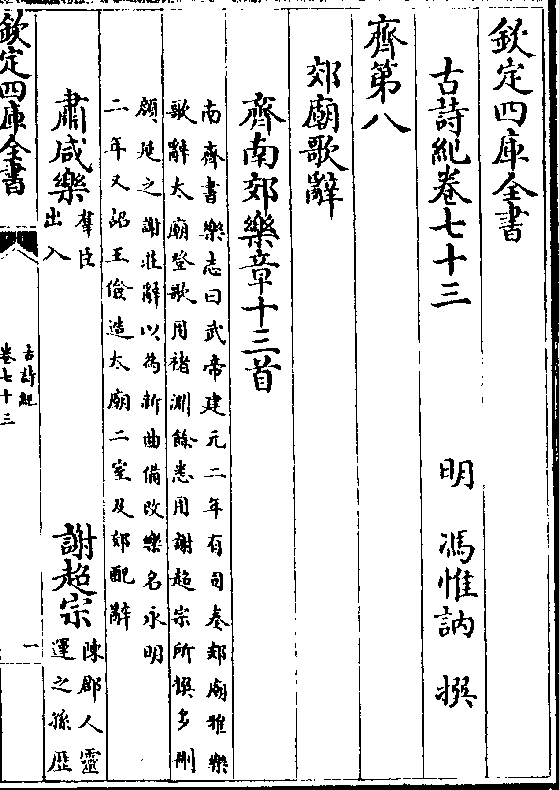 欽定四庫全書
古詩紀卷七十三　明　馮惟訥　撰
齊第八
郊廟歌辭
齊南郊樂章十三首
南齊書樂志曰武帝建元二年有司奏郊廟雅樂
歌辭太廟登歌用褚淵餘悉用謝超宗所撰多刪
顔延之謝莊辭以為新曲備改樂名永明
二年又詔王儉造太廟二室及郊配辭
肅咸樂
羣臣
出入
謝超宗
陳郡人靈
運之孫歴
欽定四庫全書
古詩紀
卷七十三
一